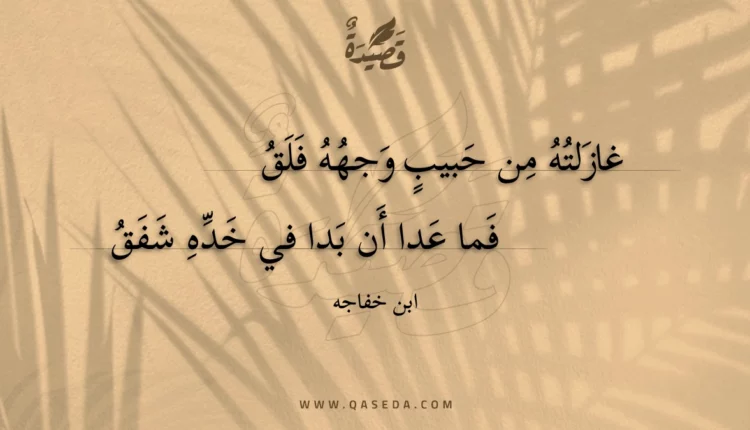 قَصِيْدَةٌ
غازَلتُهُ مِن حَبيبٍ وَجهُهُ فَلَقُ
فَما عَدا أَن بَدا في خَدِّهِ شَفَقُ
ابن خفاجه
WWW.QASEDA.COM